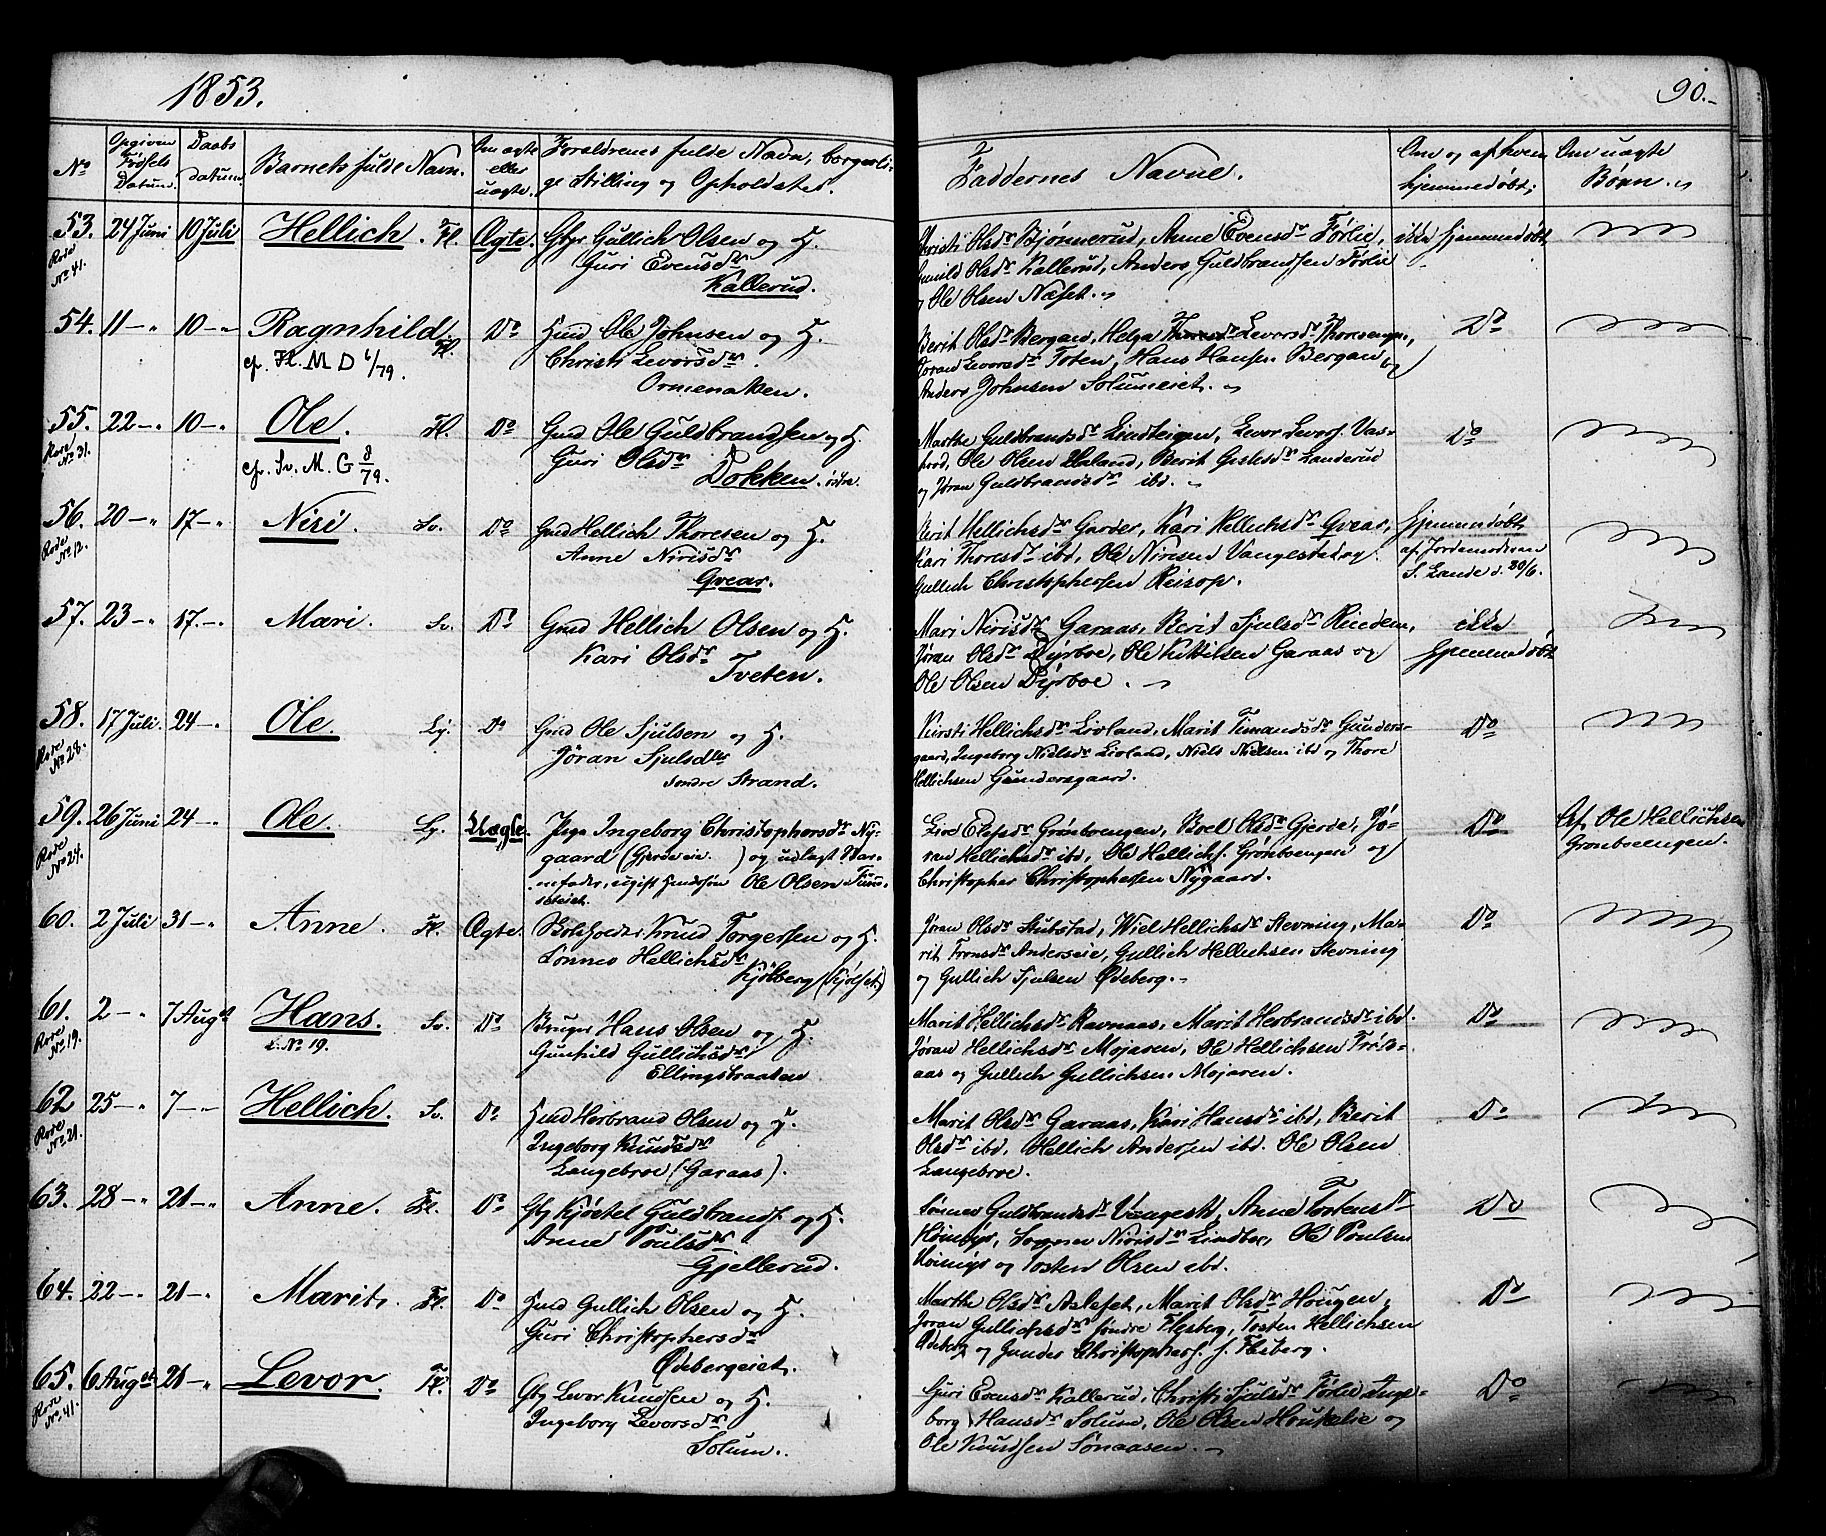 1853.
90.
No
Opgiven Fødsels Datum.
Daabs datum.
Barnets fulde Navn.
Om ægte eller uægte.
Forældrenes fulde Navn, borgerli-
ge Stilling og Opholdsted.
Faddernes Navne.
Om og af hvem hjemmedøbt;
Om uægte Børn.
53. 24 Juni 10 Juli Hellich. Fl. Ægte. Gbr Gullich Olsen og H.
Rode No 41.
Guri Evensdr
Kallerud.
Christi Olsdr Bjønnerud, Anne Evensdr Førlie,
Gunild Olsdr Kallerud, Anders Guldbrandsen Førlie
og Ole Olsen Næset.
ikke hjemmedøbt
54. 11 10 Ragnhild Fl. Do Gmd Ole Johnsen og H.
cfr. Fl. M D 6/79.
Christi Levorsdr
Ormenaken.
Berit Olsdr Bergan, Helga Levorsdr Thorsenge,
Jøran Levorsdr Toten, Hans Hansen Bergan og
Anders Johnsen Solumeiet.
Do
55. 22 10 Ole. Fl. Do Gmd Ole Guldbrandsen og H.
Rode No 31.
cfr. Sv. M. G 8/79.
Guri Olsdr
Dokken. idre.
Marthe Guldbrandsdr Lindteigen, Levor Levors. Vas-
hvod, Ole Olsen Haland, Berit Gislesdr Landerud
og Jøran Guldbrandsdr ibd.
Do
56. 20 17 Niri. Sv. Do Gmd Hellich Thoresen og H.
Rode No 12.
Anne Nirisdr
Gvear.
Berit Hellichsdr Garder, Kari Hellichsdr Gvear,
Kari Thoresdr ibd, Ole Nirisen Vangestad og
Gullich Christophersen Reisop.
Hjemmedøbt
af Jordemoderen
S. Lande d. 30/6.
57. 23 17. Mari. Sv. Do Gmd Hellich Olsen og H.
Kari Olsdr
Tveten.
Mari Nirisdr Garaas, Berit Sjulsdr Rindem,
Jøran Olsdr Dyrboe, Ole Kittilsen Garaas og
Ole Olsen Dyrboe.
ikke
Hjemmedøbt
58. 17 Juli. 24 Ole. Ly. Do Gmd Ole Sjulsen og H.
Rode No 28.
Jöran Sjulsdtr
søndre Strand.
Kirsti Hellichsdr Livland, Marit Timandsdr Gunders-
gaard, Ingeborg Nielsdr Livland, Niels Nielsen ibd og Thore
Hellichsen Gundersgaard.
Do
59. 26 Juni 24 Ole. Ly. Uægte Pige Ingeborg Christophersdr Ny-
Rode No 24.
gaard (Gjerdeeie. ) og udlagt Bar-
nefader, ugift Huusesøn Ole Olsen
Live Olsdr Grønbvengen, Boel Olsdr Gjerde, Jø-
ran Hellichsdr ibd, Ole Hellichs. Grønbvengen og
Christopher Christophersen Nygaard.
Do
Af Ole Hellichsen
Grønbvengen.
60. 2 Juli 31 Anne. Fl. Ægte. Boleholder Knud Torgersen og H.
Lønnev Hellichsdr
Kjölberg (Kjörset)
Jøran Olsdr Stubstad, Wiel Hellichsdr Stevning, Ma-
rit Tronsdr Anderseie, Gullich Hellichsen Stevning
og Gullich Sjulsen Ødeberg.
Do
61. 2 7 August Hans. Sv. Do Bruger Hans Olsen og H.
Rode No 19.
l. No 19.
Gunhild Gullichsdr
Ellingsbraaten
Marit Hellichsdr Ravnaas, Marit Herbrandsdr ibd.
Jøran Hellichsdr Mojaren, Ole Hellichsen Trøls-
aas og Gullich Gullichsen Mojaren.
Do
62 25 7 Hellich. Sv. Do Gmd Herbrand Olsen og H.
Rode No 21.
Ingeborg Knudsdr
Langebroe (Garaas).
Marit Olsdr Garaas, Kari Hansdr ibd, Berit
Olsdr ibd, Hellich Andersen ibd. Ole Olsen
Langebroe.
Do
63. 28 21 Anne. Fl. Do Gbr Kjøstel Guldbrands. og H.
Anne Poulsdr
Gjellerud.
Lønnev Guldbrandsdr Vangest, Anne Tostensdr
Høimyr, Lognev Nirisdr Lindboe, Ole Poulsen
Høimyr og Tosten Olsen ibd.
Do
64. 22 21 Marit. Fl. Do Gmd Gullich Olsen og H.
Guri Christophersdr
Ødebergeiet.
Marthe Olsdr Aslefet, Marit Olsdr Hougen,
Jøran Gullichsdr søndre Flesberg, Tosten Hellichsen
Ødeberg og Gunder Christophers. s. Flesberg.
Do
65. 6 August 21 Levor. Fl. Do Gbr Levor Knudsen og H.
Rode No 41.
Ingeborg Levorsdr
Solum.
Guri Evensdr Kallerud, Christi Sjulsdr Førlie, Inge-
borg Hansdr Solum, Ole Olsen Houkelie og
Ole Knudsen Sønaasen.
Do